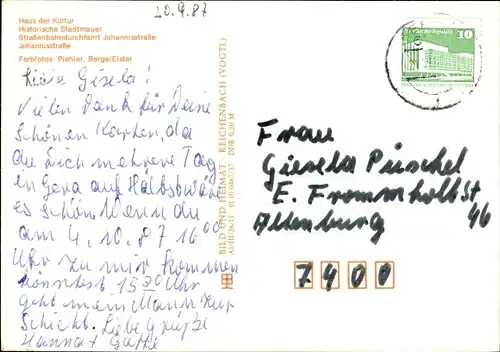 20.9.87
Haus der Kultur
Historische Stadtmauer
Straßenbahndurchfahrt Johannisstraße
Johannisstraße
Farbfotos: Piehler, Berga/Elster
Liebe Gisela!
Vielen Dank für Deine
schönen Karten, da
du Dich mehrere Tag
in Gera auf
es schön wenn du
am 4.10.87 16⁰⁰
Uhr zu mir kommen
könntest 15³⁰ Uhr
geht mein Mann zur
Schicht. Liebe Grüße
Hanna +
BILD UND HEIMAT REICHENBACH (VOGTL)
DDR 0,20 M
10
Frau
Giesela Püschel
E. Frommholdst
46
Altenburg
7400